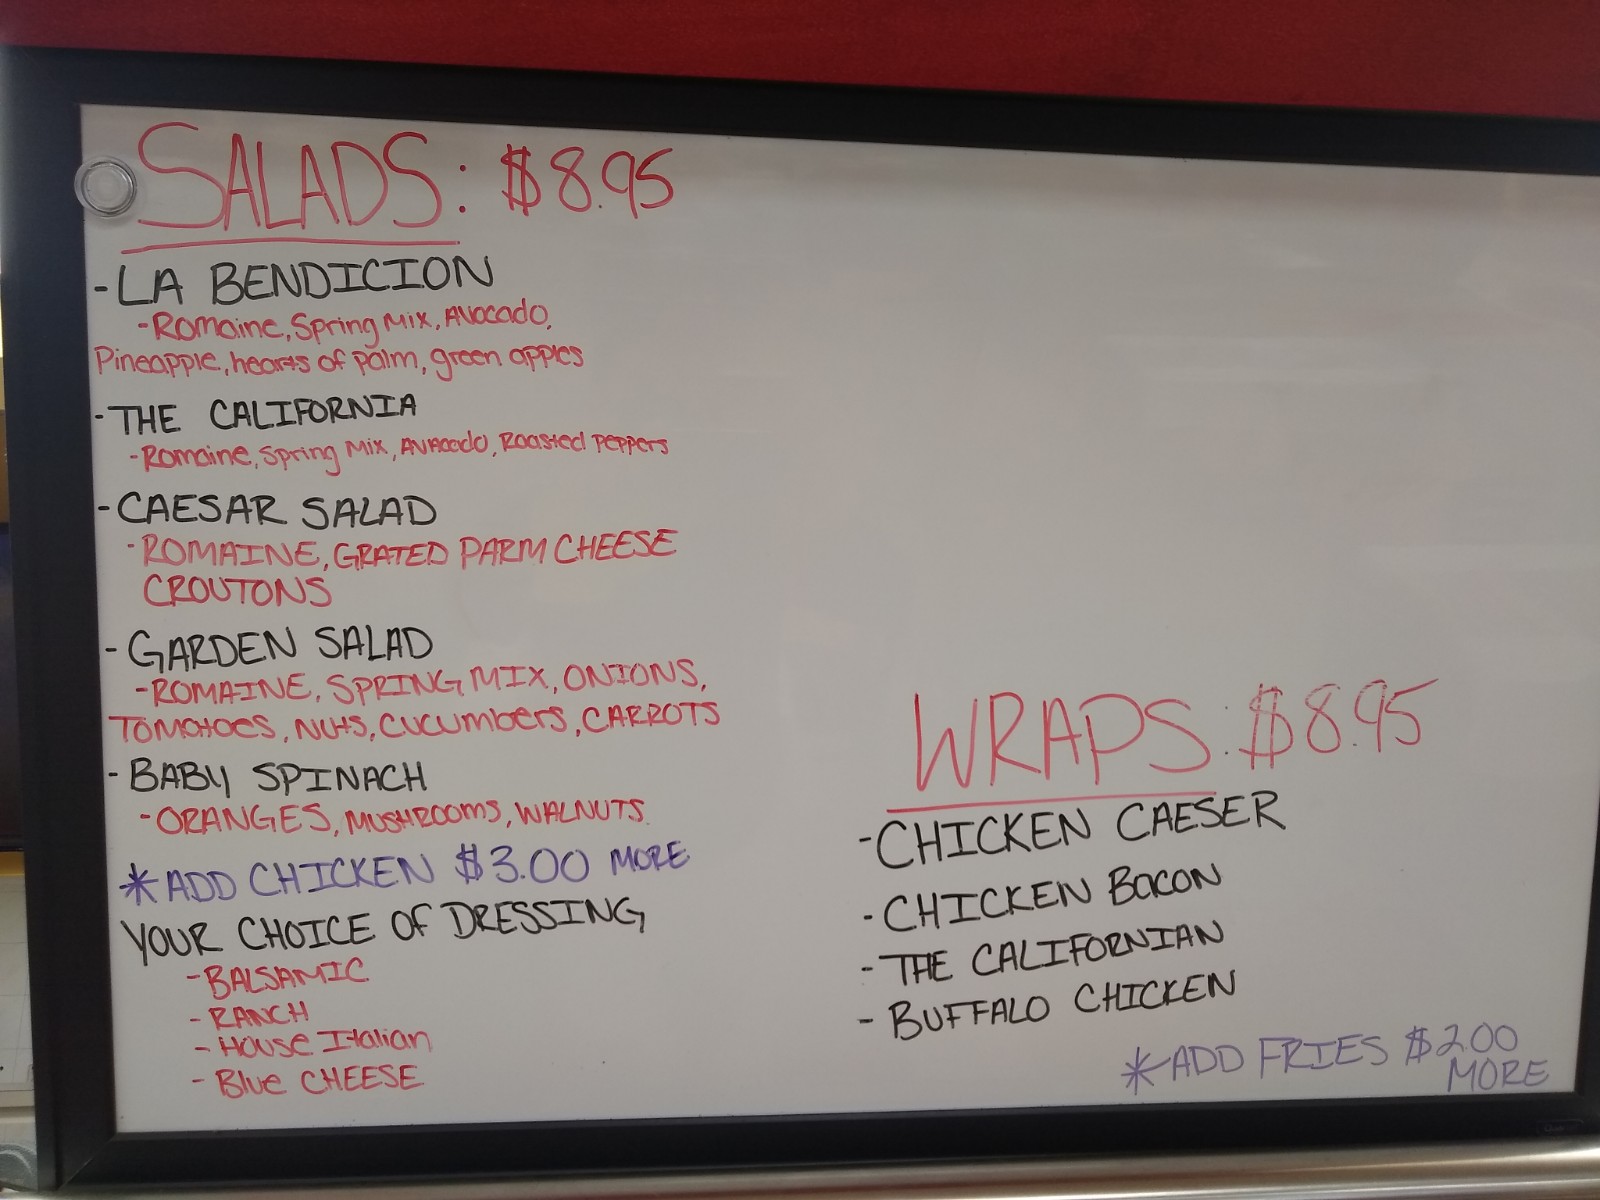 SALADS: $8.95
-LA BENDICION
-Romaine, Spring Mix, Avocado,
Pineapple, hearts of palm, green apples
-THE CALIFORNIA
-Romaine, Spring Mix, AVAcado, Roasted Peppers
-CAESAR SALAD
-ROMAINE, GRATED PARM CHEESE
CROUTONS
-GARDEN SALAD
-ROMAINE, SPRING MIX, ONIONS,
TOMATOES, NUTS, CUCUMBERS, CARROTS
-BABY SPINACH
-ORANGES, MUSHROOMS, WALNUTS
*ADD CHICKEN $3.00 MORE
YOUR CHOICE OF DRESSING
-BALSAMIC
-RANCH
-HOUSE Italian
-Blue CHEESE
WRAPS: $8.95
-CHICKEN CAESER
-CHICKEN BACON
-THE CALIFORNIAN
-BUFFALO CHICKEN
*ADD FRIES $2.00
MORE